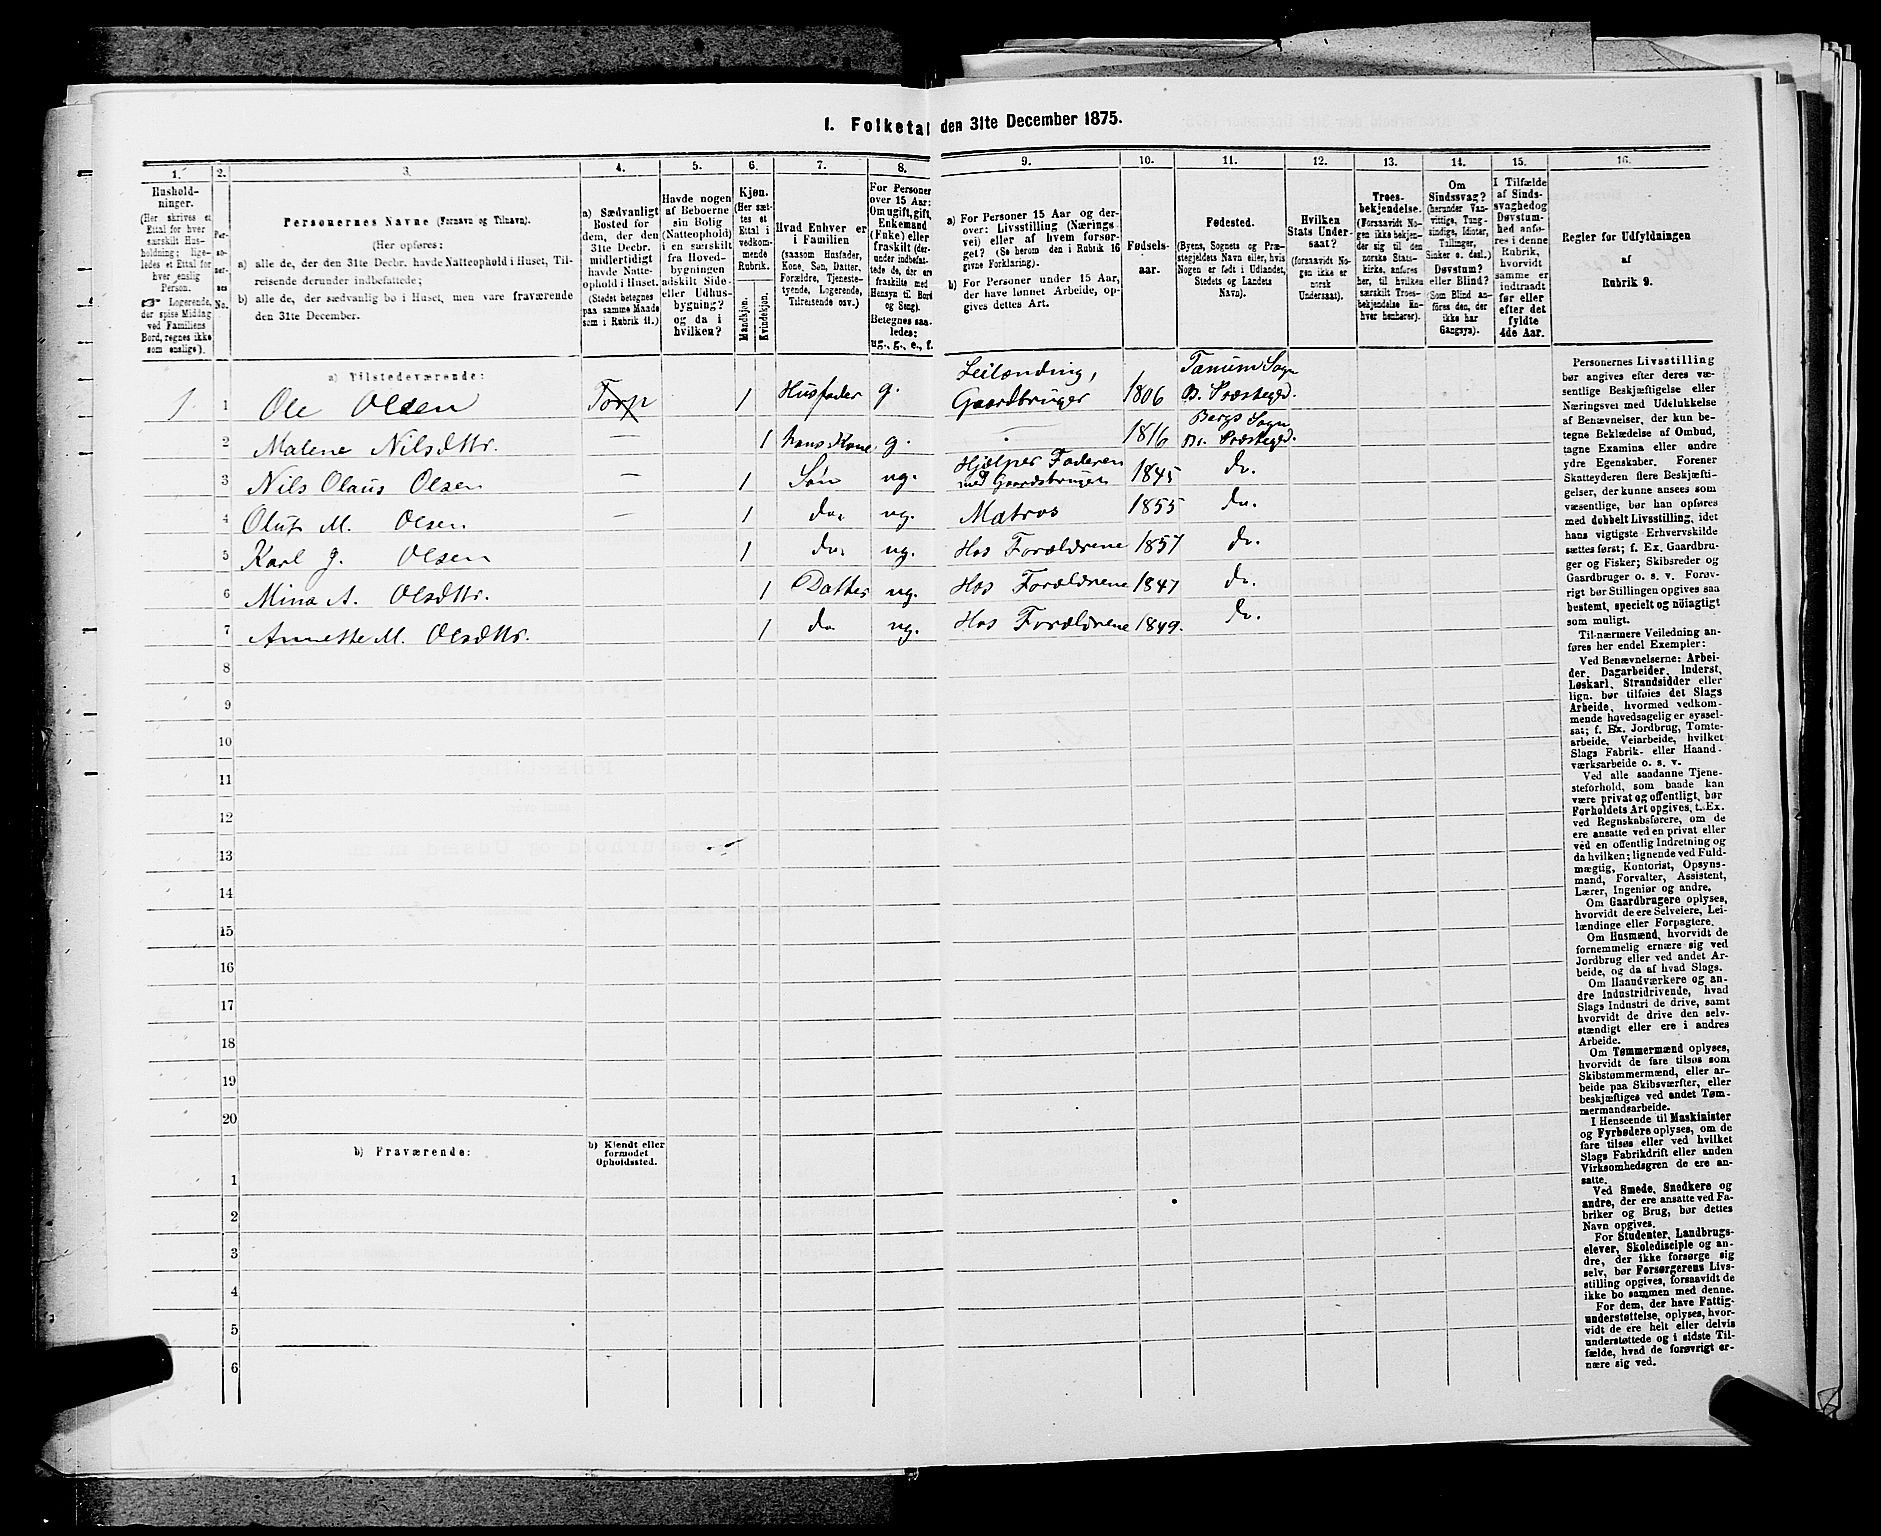 1. Folketal den 31te December 1875.
1.
Hushold-
ninger.
(Her skrives et
Ettal for hver
særskilt Hus-
holdning; lige-
ledes et Ettal for
hver enslig
Person.
Logerende,
der spise Middag
ved Familiens
Bord, regnes ikke
som enslige).
2.
Per-
so-
ner-
nes
No.
3.
Personernes Navne (Fornavn og Tilnavn).
(Her opføres:
a) alle de, der den 31te Decbr. havde Natteophold i Huset, Til-
reisende derunder indbefattede;
b) alle de, der sædvanlig bo i Huset, men vare fraværende
den 31te December.
4.
a) Sædvanligt
Bosted for
dem, der den
31te Decbr.
midlertidigt
havde Natte-
ophold i Huset.
(Stedet betegnes
paa samme Maade
som i Rubrik 11.)
5.
Havde nogen
af Beboerne
sin Bolig
(Natteophold)
i en særskilt
fra Hoved-
bygningen
adskilt Side-
eller Udhus-
bygning?
og da i
hvilken?
6.
Kjøn.
(Her sæt-
tes et
Ettal i
vedkom-
mende
Rubrik.
Mandkjøn.
Kvindekjøn.
7.
Hvad Enhver er
i Familien
(saasom Husfader,
Kone, Søn, Datter,
Forældre, Tjeneste-
tyende, Logerende,
Tilreisende osv.)
8.
For Personer
over 15 Aar:
Om ugift, gift,
Enkemand
(Enke) eller
fraskilt (der-
under indbefat-
tede de, der ere
fraskilte med
Hensyn til Bord
og Seng).
Betegnes saa-
ledes:
ug., g., e., f.
9.
a) For Personer 15 Aar og der-
over: Livsstilling (Nærings-
vei) eller af hvem forsør-
get? (Se herom den i Rubrik 16
givne Forklaring).
b) For Personer under 15 Aar,
der have lønnet Arbeide, op-
gives dettes Art.
10.
Fødsels-
aar.
11.
Fødested.
(Byens, Sognets og Præ-
stegjeldets Navn eller, hvis
Nogen er født i Udlandet,
Stedets og Landets
Navn).
12.
Hvilken
Stats Under-
saat?
(forsaavidt No-
gen ikke er
norsk
Undersaat).
13.
Troes-
bekjendelse.
(Forsaavidt No-
gen ikke bekjen-
der sig til den
norske Stats-
kirke, anføres
her, til hvilken
særskilt Troes-
bekjendelse En-
hver henhører).
14.
Om
Sindssvag?
(herunder Van-
vittige, Tung-
sindige, Idioter,
Tullinger,
Sinker o. desl.)
Døvstum?
eller Blind?
(Som Blind an-
føres den, der
ikke har
Gangsyn).
15.
I Tilfælde
af Sinds-
svaghed og
Døvstum-
hed anfø-
res i denne
Rubrik,
hvorvidt
samme er
indtraadt
før eller
efter det
fyldte
4de Aar.
16.
Regler for Udfyldningen
af
Rubrik 9.
a) Tilstedeværende:
1 1 Ole Olsen Torp 1 Husfader g. Leilænding, Gaardbruger 1806 Tanum Sogn B. Præstegd.
2 Malene Nilsdttr. — 1 hans Kone g. 1816 Bergs Sogn Br. Præstegd.
3 Nils Olaus Olsen — 1 Søn ug. Hjælper Faderen med Gaardsbruget 1845 do.
4 Oluf M. Olsen — 1 do. ug. Matros 1855 do.
5 Karl J. Olsen 1 do. ug. Hos Forældrene 1857 do.
6 Mina A. Olsdttr. 1 Datter ug. Hos Forældrene 1847 do.
7 Annette M. Olsdttr. 1 do ug. Hos Forældrene 1849. do.
8
9
10
11
12
13
14
15
16
17
18
19
20
b) Fraværende:
b) Kjendt eller
formodet
Opholdssted.
1
2
3
4
5
6
Personernes Livsstilling
bør angives efter deres væ-
sentlige Beskjæftigelse eller
Næringsvei med Udelukkelse
af Benævnelser, der kun be-
tegne Beklædelse af Ombud,
tagne Examina eller andre
ydre Egenskaber. Forener
Skatteyderen flere Beskjæfti-
gelser, der kunne ansees som
væsentlige, bør han opføres
med dobbelt Livsstilling, idet
hans vigtigste Erhvervskilde
sættes først; f. Ex. Gaardbru-
ger og Fisker; Skibsreder og
Gaardbruger o. s. v. Forøv-
rigt bør Stillingen opgives saa
bestemt, specielt og nøiagtigt
som muligt.
Til nærmere Veiledning an-
føres her endel Exempler:
Ved Benævnelserne: Arbei-
der, Dagarbeider, Inderst,
Løskarl, Strandsidder eller
lign. bør tilføies det Slags
Arbeide, hvormed vedkom-
mende hovedsagelig er syssel-
sat; f. Ex. Jordbrug, Tomte-
arbeide, Veiarbeide, hvilket
Slags Fabrik- eller Haand-
værksarbeide o. s. v.
Ved alle saadanne Tjene-
steforhold, som baade kan
være privat og offentligt, bør
Forholdets Art opgives, t. Ex.
ved Regnskabsførere, om de
ere ansatte ved en privat eller
ved en offentlig Indretning og
da hvilken; lignende ved Fuld-
mægtig, Kontorist, Opsyns-
mand, Forvalter, Assistent,
Lærer, Ingeniør og andre.
Om Gaardbrugere oplyses,
hvorvidt de ere Selveiere, Lei-
lændinge eller Forpagtere.
Om Husmænd, hvorvidt de
fornemmelig ernære sig ved
Jordbrug eller ved andet Ar-
beide, og da af hvad Slags.
Om Haandværkere og an-
dre Industridrivende, hvad
Slags Industri de drive, samt
hvorvidt de drive den selv-
stændigt eller ere i andres
Arbeide.
Om Tømmermænd oplyses,
hvorvidt de fare tilsøs som
Skibstømmermænd, eller ar-
beide paa Skibsværfter, eller
beskjæftiges ved andet Tøm-
mermandsarbeide.
I Henseende til Maskinister
og Fyrbødere oplyses, om de
fare tilsøs eller ved hvilket
Slags Fabrikdrift eller anden
Virksomhedsgren de ere an-
satte.
Ved Smede, Snedkere og
andre, der ere ansatte ved Fa-
briker og Brug, bør dettes
Navn opgives.
For Studenter, Landbrugs-
elever, Skoledisciple og an-
dre, der ikke forsørge sig
selv, bør Forsørgerens Livs-
stilling opgives, forsaavidt de
ikke bo sammen med denne.
For dem, der have Fattig-
understøttelse, oplyses, hvor-
vidt de ere helt eller delvis
understøttede og i sidste Til-
fælde, hvad de forøvrigt er-
nære sig ved.